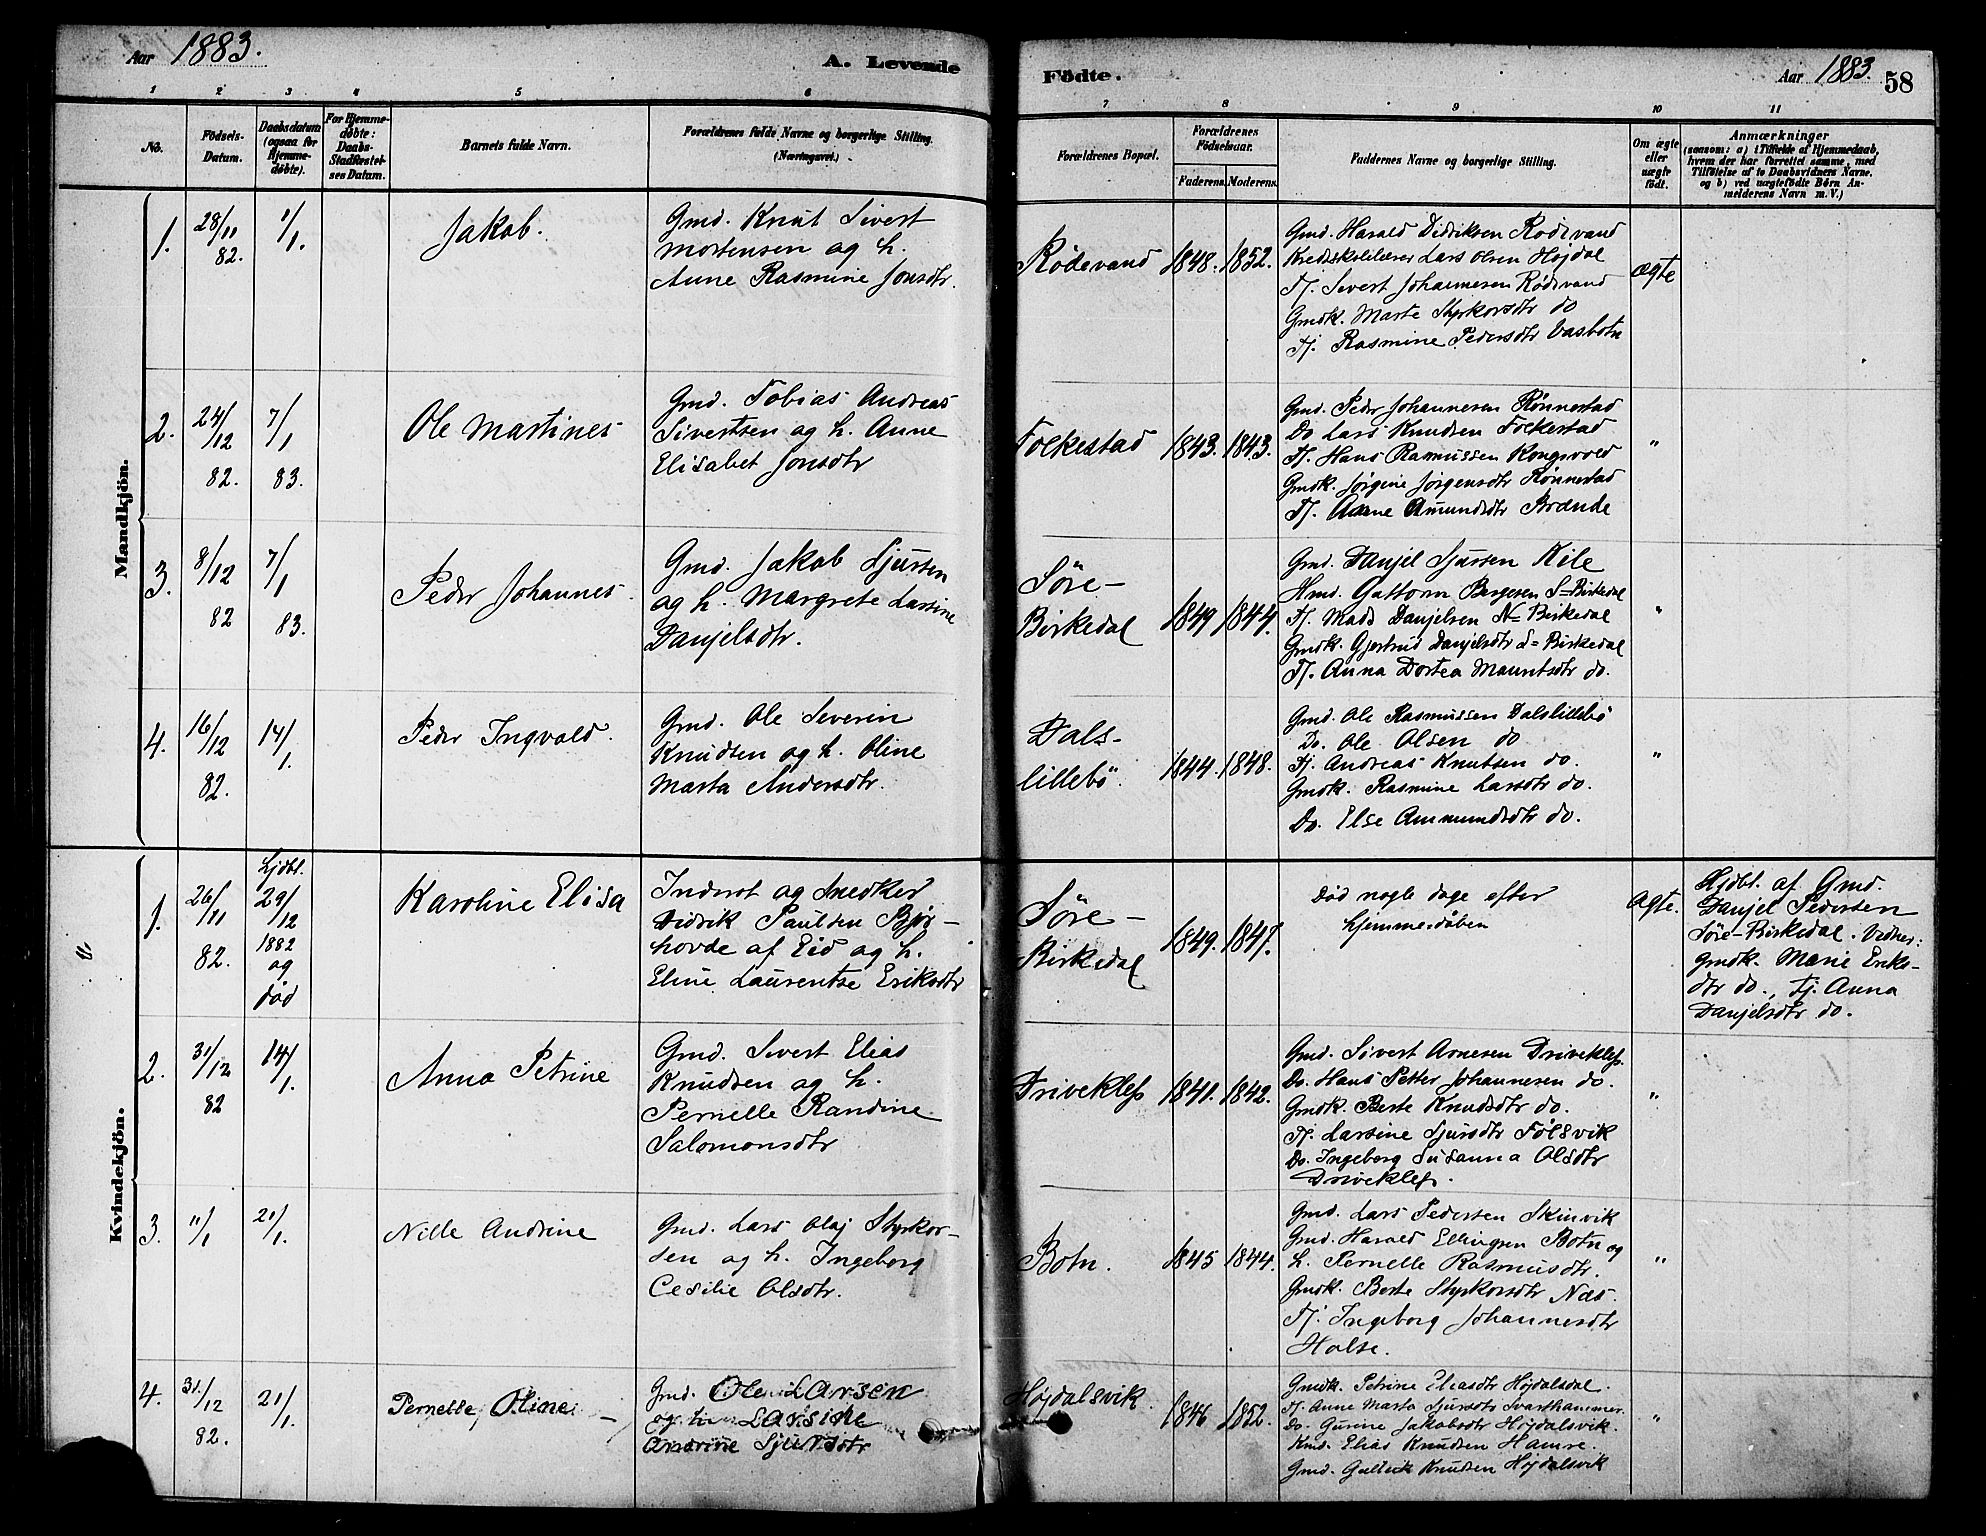 Aar 1883.
A. Levende
Födte.
Aar 1883.
58
1 2 3 4 5 6
7 8 9 10 11
No.
Födsels-
Datum.
Daabsdatum
(ogsaa for
Hjemme-
döbte).
For Hjemme-
døbte:
Daabs-
Stadfæstel-
ses Datum.
Barnets fulde Navn.
Forældrenes fulde Navne og borgerlige Stilling.
(Næringsvei.)
Forældrenes Bopæl.
Forældrenes
Födselsaar.
Faderens. Moderens.
Faddernes Navne og borgerlige Stilling.
Om ægte
eller
uægte
født.
Anmærkninger
(saasom: a) i Tilfælde af Hjemmedaab,
hvem der har forrettet samme, med
Tilföielse af to Daabsvidners Navne,
og b) ved uægtefödte Börn An-
melderens Navn m. V.)
Mandkjön.
1.
28/11
82.
1/1.
Jakob.
Gmd. Knut Sivert
Mortensen og h.
Anne Rasmine Jonsdtr.
Rødevand
1848. 1852.
Gmd. Harald Didriksen Rødevand
Kredsskolelærer Lars Olsen Højdal
Tj. Sivert Johannesen Rødevand
Gmdk. Marte Styrkorsdtr do
Tj. Rasmine Pedersdtr Vasbotn
ægte
2.
24/12
82.
7/1
83.
Ole Martines
Gmd. Tobias Andreas
Sivertsen og h. Anne
Elisabet Jonsdtr
Folkestad
1843. 1843.
Gmd. Peder Johannesen Rønnestad
Do Lars Knudsen Folkestad
Tj. Hans Rasmussen Kongsvold
Gmdk. Jørgine Jørgensdtr Rønnestad
Tj. Anne Amundsdtr Brænde
"
3.
8/12
82
7/1
83.
Peder Johannes
Gmd. Jakob Sjursen
og h. Margrete Larsine
Danjelsdtr.
Søre-
Birkedal
1849 1844.
Gmd. Danjel Sjursen Kile
Hmd. Guttorm Børgesen S=Birkedal
Tj. Mads Danjelsen N=Birkedal
Gmdk. Gjertrud Danjelsdtr S=Birkedal
Tj. Anna Dortea Mauritsdtr do.
"
4.
16/12
82.
14/1.
Peder Ingvald.
Gmd. Ole Severin
Knudsen og h. Oline
Marta Andersdtr.
Dals-
lillebö.
1844. 1848.
Gmd. Ole Rasmussen Dalslillebö
Do. Ole Olsen do
Tj. Andreas Knutsen do.
Gmdk. Rasmine Larsdtr do.
Do. Else Ammundsdtr do.
"
Kvindekjön.
1.
26/11
82.
Hjdbt.
29/12
1882
og
død
Karoline Elisa
Inderst og Snedker
Didrik Paulsen Bjør-
hovde af Eid og h.
Eline Laurentse Eriksdtr
Søre-
Birkedal
1849. 1847.
Død nogle dage efter
hjemmedåben
ægte.
Hjdbt. af Gmd.
Danjel Pedersen
Søre-Birkedal. Vidner:
Gmdk. Marie Eriks-
dtr do., Tj. Anna
Danjelsdtr do.
2.
31/12
82
14/1.
Anna Petrine
Gmd. Sivert Elias
Knudsen og h.
Pernelle Randine
Salomonsdtr
Driveklep
1841. 1842.
Gmd. Sivert Arnesen Driveklep.
Do. Hans Petter Johannesen do.
Gmdk. Berte Knudsdtr do.
Tj. Larsine Sjursdtr Følsvik
Do. Ingeborg Susanna Olsdtr
Driveklep.
"
3.
11/1
21/1.
Nille Andrine
Gmd. Lars Olaj Styrkor-
sen og h. Ingeborg
Cesilie Olsdtr.
Botn.
1845 1844.
Gmd. Lars Pedersen Skinvik
Gmd. Harald Ellingsen Botn og
h. Pernelle Rasmusdtr.
Gmdk. Berte Styrkorsdtr Næs.
Tj. Ingeborg Johannesdtr
Halse.
"
4.
31/12
82.
21/1.
Pernelle Oline
Gmd. Ole Larsen
og h. Larsine
Andrine Sjursdtr
Højdalsvik.
1846 1852.
Gmdk. Petrine Eliasdtr Højdalsdal.
Tj. Anne Marta Sjursdtr Svarthammer.
Do. Gurine Jakobsdtr Højdalsvik.
Kmd. Elias Knudsen Hamre.
Gmd. Gullik Knudsen Højdalsvik
"